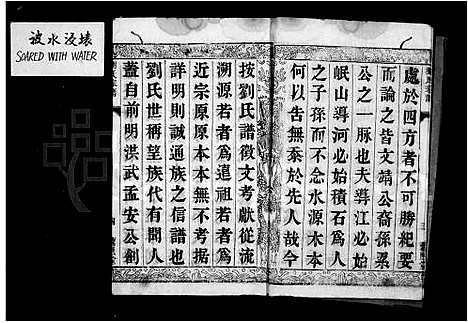 被水浸壞
SOAKED WITH WATER
處於四方者不可勝紀要
而論之皆文靖公裔孫累
公之一脉也夫導江必始
岷山導河必始積石為人
之子孫而不念水源木本
何以告無泰於先人哉今
按劉氏譜徵文考獻從流
溯源若者為遠祖若者為
近宗原原本本無不考据
詳明則誠通族之信譜也
劉氏世稱望族代有聞人
蓋自前明洪武孟安公創